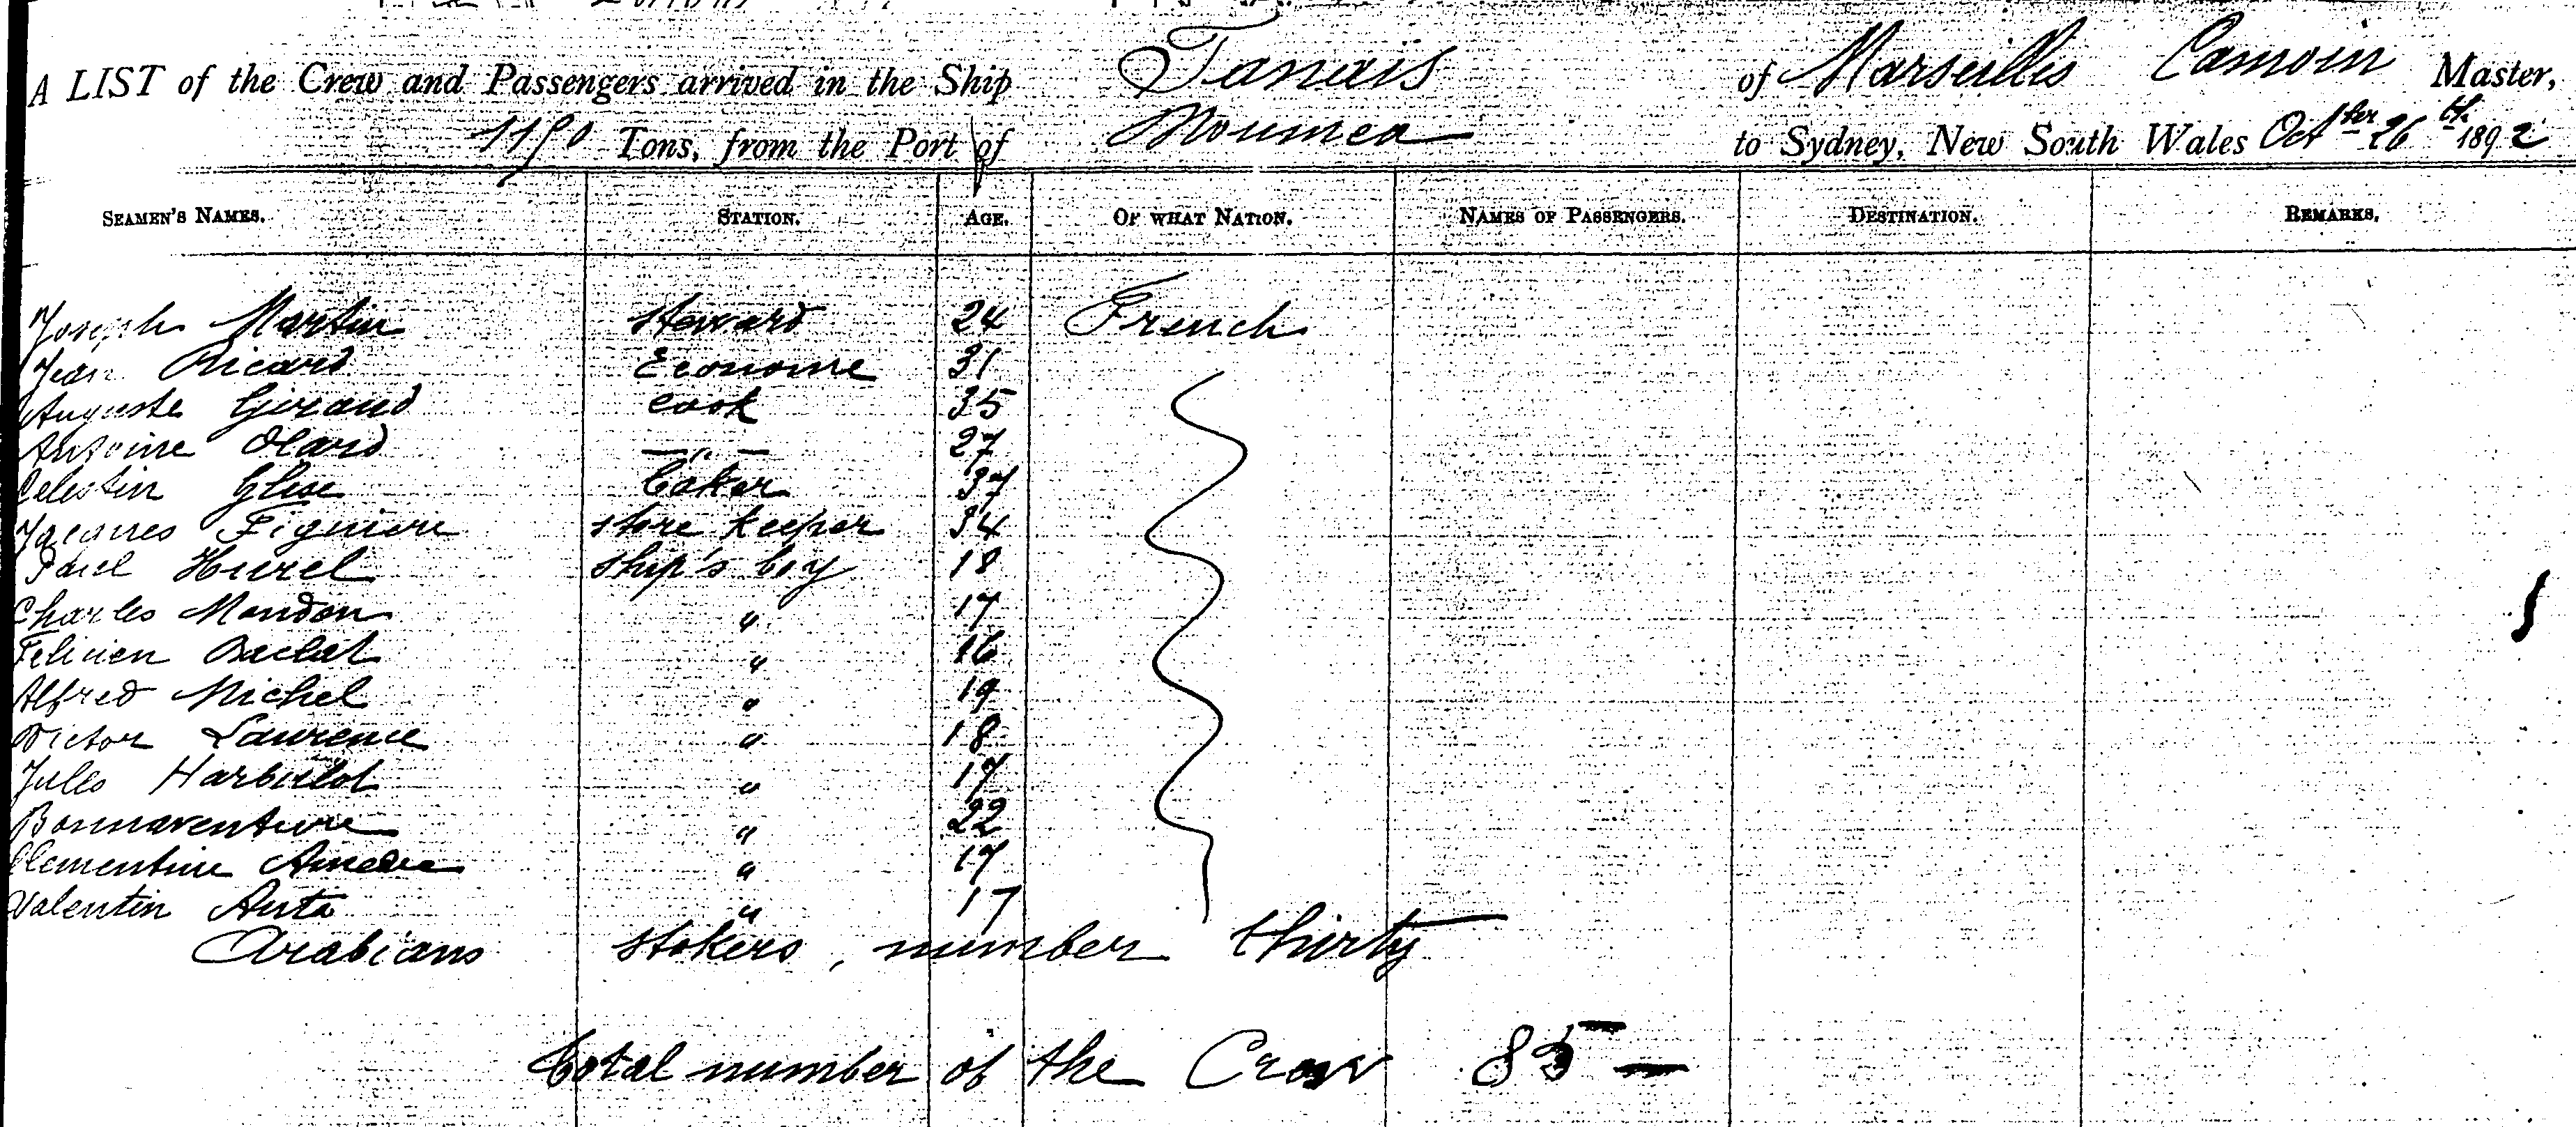 A LIST of the Crew and Passengers arrived in the Ship Tanais of Marseilles Camoin Master,
Tons, from the Port of Noumea to Sydney, New South Wales Octber 26th 1892
SEAMEN'S NAMES. STATION. AGE. OF WHAT NATION. NAMES OF PASSENGERS. DESTINATION. REMARKS.
Joseph Martin Steward 24 French
Jean Ricard Econome 31
Auguste Giraud cook 35
Antoine Olard —"— 27
Celestin Glise baker 37
Jacques Figuiere store keeper 34
Paul Hurel ship's boy 18
Charles Mondon " 17
Felicien " 16
Alfred Michel " 19
Victor Laurence " 18
Jules Harbulot " 17
Bonnaventure " 22
Clementine Amedee " 17
Valentin Auta " 17
Arabians stokers, number thirty
total number of the Crew 85 —